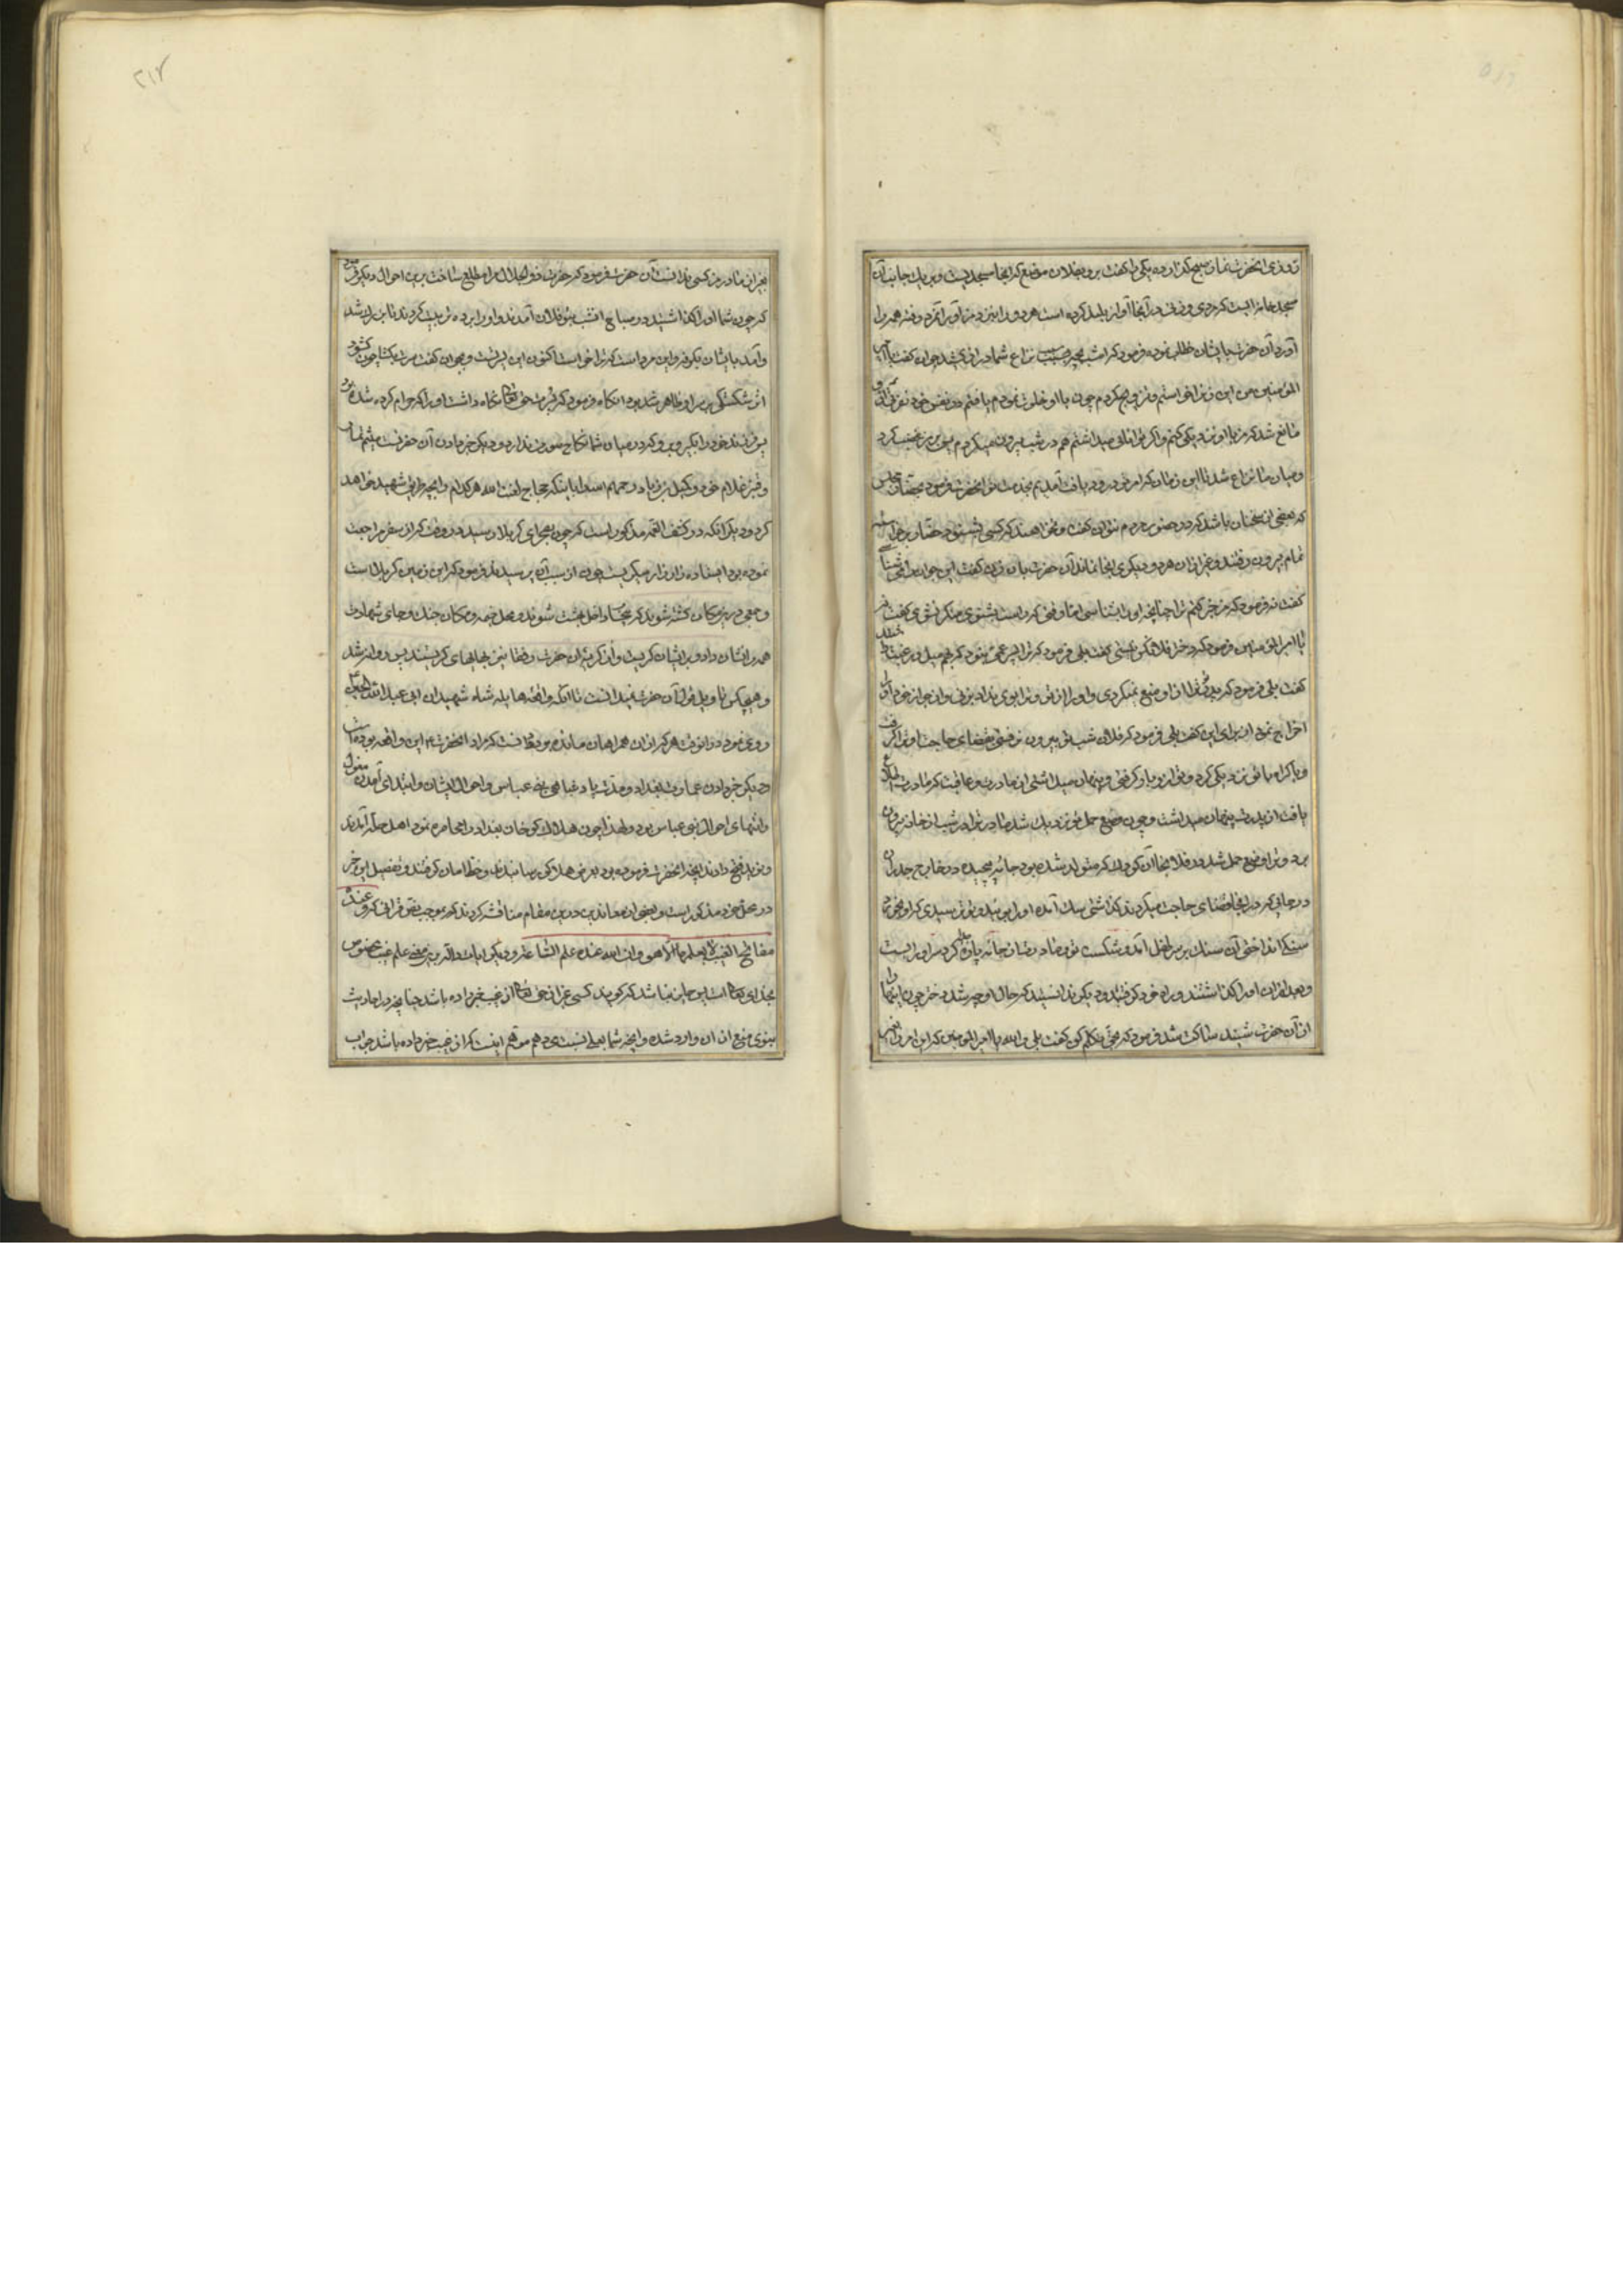 روزی انحضرت نماز صبح کذارده یکی را کفت برو بفلان موضع که انجا مسجدیست و بر یک جانب آن
مسجد خانه ایست که مردی و زنی در آنجا آواز بلند کرده است هر دو را نزد من آور آنمرد رفته همه را
آورد آن حضرت با یشان خطاب نموده فرمود که امشب بچه سبب نزاع شما دراز کشید جوان کفت یا امیر
المؤمنین من این زن را خواستم و تزویج کردم چون با او خلوت نمودم یافتم در نفس خود نفرتی که
مانع شد که من با او نزدیکی کنم و اکر توانائی میداشتم هم در شب بیرون میکردم پس بر من غضب کرد
و میان ما نزاع شد تا این زمان که امر تو در رود یافت آمدیم بخدمت تو انحضرت فرمود بحضار مجلس
که بعضی از سخنان باشد که در حضور مردم نتوان کفت و نخواهند که کسی بشنود حضار برخواسته
تمام بیرون رفتند و غیر از ان هر دو دیکری انجا نماند آن حضرت بان زن کفت این جوان را می شناسی
کفت نه فرمود که من خبر کنم ترا چنانچه او را بشناسی اما وقتی که راست بشنوی منکر نشوی کفت نه
یا امیر المؤمنین فرمود که دختر فلانکس نیستی کفت بلی فرمود که ترا پسر عمی بنود که بهم میل و رغبت داشتید
کفت بلی فرمود که پدر تو ترا از او منع نمیکردی و او را از تو و ترا بوی نداد بزنی و از جوار خود او را
اخراج نمود از برای این کفت بلی فرمود که فلان شب تو بیرون رفتی بقضای حاجت او ترا کرفت
و باکراه با تو نزدیکی کرد و تو از و بار کرفتی و پنهان میداشتی از مادرت و عاقبت که مادرت اطلاع
یافت از پدرت پنهان میداشت و چون وضع حمل تو نزدیک شد مادر ترا در شب از خانه بیرون
برد و ترا وضع حمل شد در فلا نجا ان کودک که متولد شده بود جامه پیچیده در خارج جدران
در جائی که در انجا قضای حاجت میکردند کذاشتی سک آمده او را بویید و تو ترسیدی که او بخورد
سنکی انداختی آن سنک بر سر طفل آمد و شکست تو و مادرت از جامه پاره کرد سر او را بست
و بعد از ان او را کذاشتند و براه خود کرفتید و دیکر ندانستید که حال او چه شد دختر چون اینها را
از آن حضرت شنید ساکت شد فرمود که بحق تکلم کن کفت بلی والله یا امیر المؤمنین که این امر را
بغیر از مادر من کسی ندانست آن حضرت فرمود که حضرت ذو الجلال مرا مطلع ساخت بر این احوال دیکر فرمود
که چون شما او را کذاشتید در صباح انشب بنو فلان آمدند و او را برده تربیت کردند تا بزرک شد
و آمد با یشان بکوفه و این مرد است که ترا خواست اکنون این پسر تست و بجوان کفت سرت بکشا چون کشود
اثر شکستکی بر سر او ظاهر شد بود انکاه فرمود که فرزند حق تعالی نکاه داشت او را که حرام کرده شده بود
پس فرزند خود را بکیر و برو که در میان شما نکاح صورت ندارد و دیکر خبر دادن آن حضرتست میثم تمار
و قنبر غلام خود و کمیل بن زیاد و جمام اسد را باینکه حجاج لعنت الله هر کدام را بچه طریق شهید خواهد
کرد و دیکر انکه در کشف الغمه مذکور است که چون بصحرای کربلا رسید در وقت که از سفر مراجعت
نموده بود ایستاده زار زار میکریست چون از سبب آن پرسیدند فرمود که این زمین کربلاست
و جمعی درین مکان کشته شوند که بیحساب داخل بهشت شوند و محل خیمه و مکان جنک و جای شهادت
همه را نشان داد و بر ایشان کریست و از کریه ان حضرت رفقا نیز بهایهای کریستند پس روانه شد
و هیچکس تاویل قول آن حضرت نمیدانست تا انکه واقعه هایله شاه شهیدان ابی عبدالله الحسین
روی نمود در انوقت هر که از ان همراهان مانده بود دانست که مراد انحضرت این واقعه بوده است
و دیکر خبر دادن عمارت بغداد و مدت پادشاهی بنی عباس و احوال ایشان و ابتدای آمدن مغول
و انتهای احوال بنی عباس بود و لهذا چون هلاکو خان بغداد را محاصره نمود اهل حله آمدند
و نوید فتح دادند بانچه انحضرت فرموده بود بعرض هلاکو رسانیدند و خط امان کرفتند و تفصیل این خبر
در محل خود مذکور است و بعضی از معاندین درین مقام مناقشه کردند که بموجب نص قرانی که و عنده
مفاتح الغیب لا یعلمها الا هو و ان الله عنده علم الساعة و دیکر ایات داله برین معنی علم غیب مخصوص
بخدای تعالی است پس جایز نباشد که کوید کسی غیر از حق تعالی از غیب خبر داده باشد چنانچه در احادیث
نبوی منع از ان وارد شده و انچه شما بعلی نسبت می دهید موهم اینست که از غیب خبر داده باشد جواب
۲۱۲